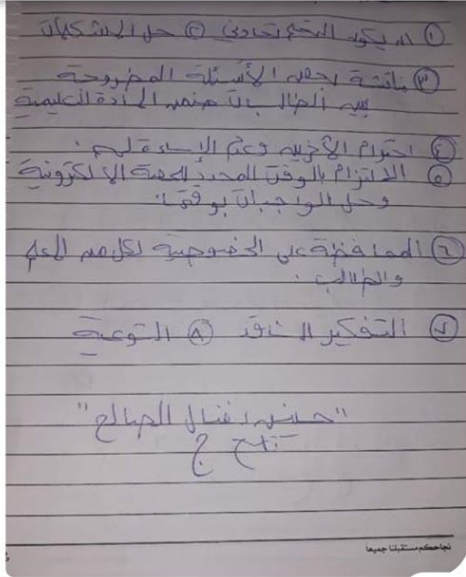 ① ان يكون التعلم تعاوني ② حل المشكلات
③ مناقشة بعض الأسئلة المطروحة
بين الطالبات ضمن المادة التعليمية
④ احترام الآخرين وعدم الإساءة لهم.
⑤ الالتزام بالوقت المحدد للحصة الالكترونية
وحل الواجبات بوقتها.
⑥ المحافظة على الخصوصية لكل من المعلم
والطالب.
⑦ التفكير الناقد ⑧ التوعية
"حنين نضال الصالح"
ج
نجاحكم مستقبلنا جميعا